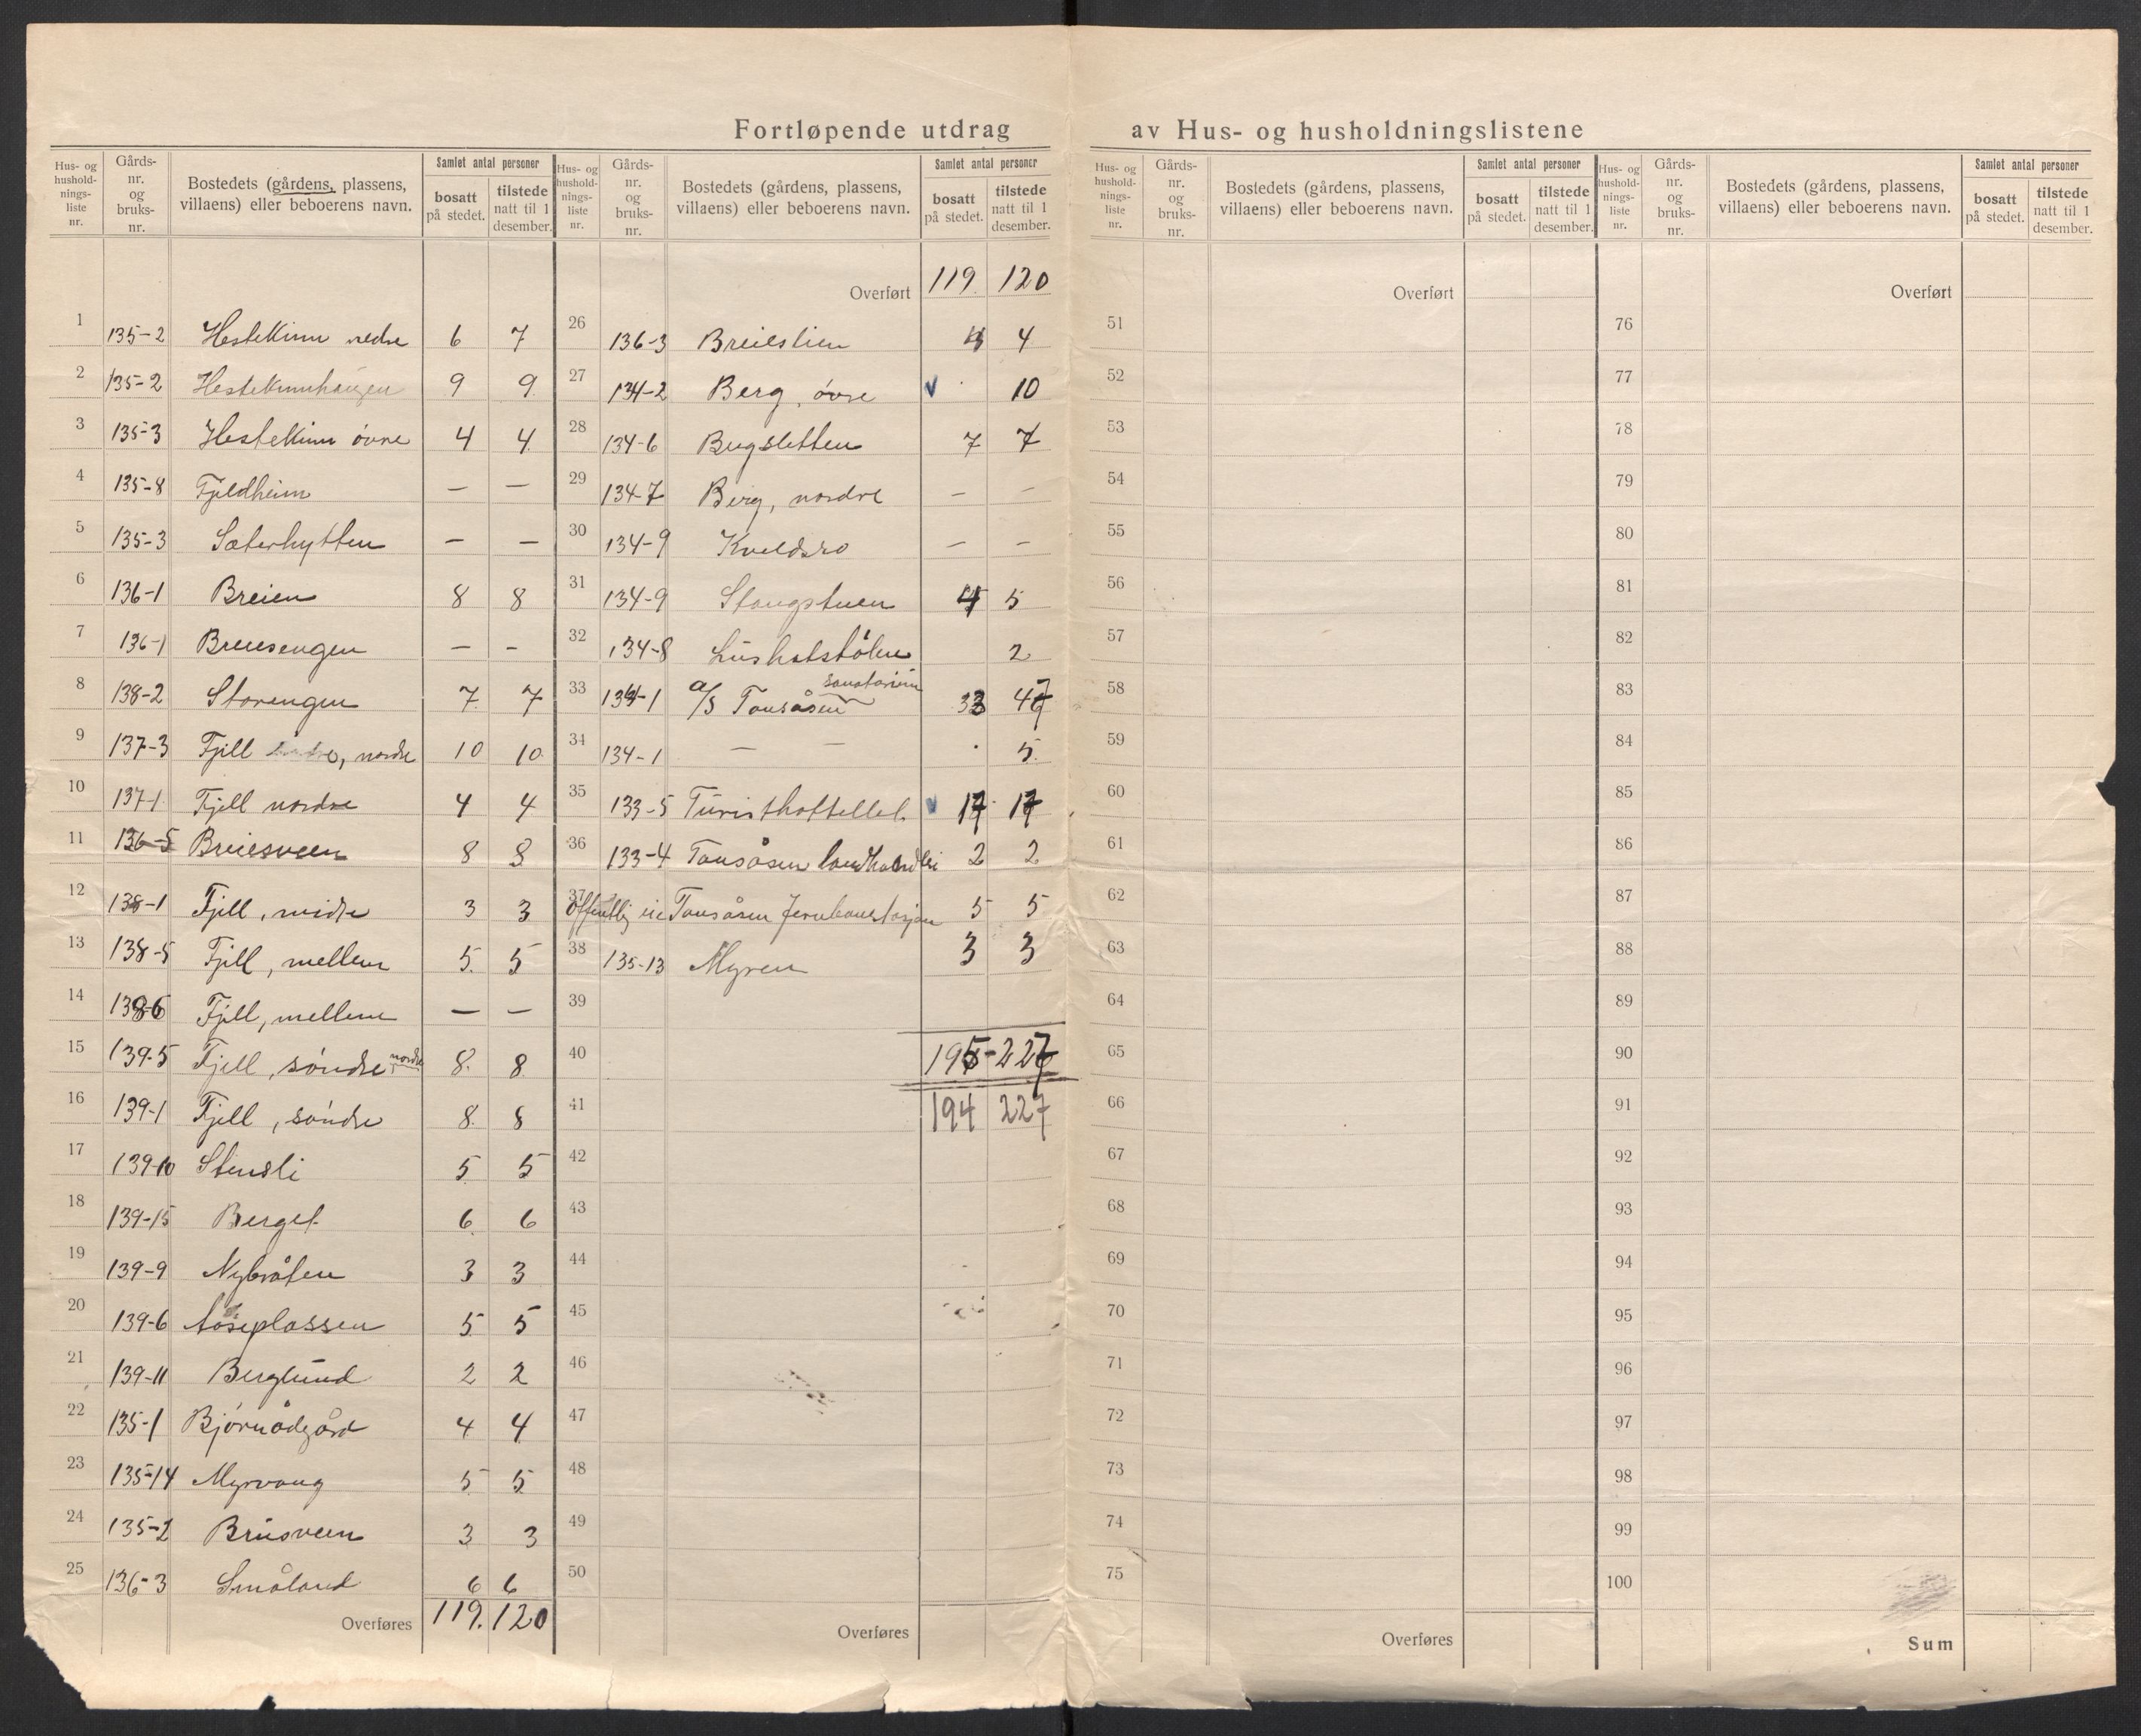 Fortløpende utdrag av Hus- og husholdningslistene
Hus- og husholdnings-liste nr. Gårds-nr. og bruks-nr. Bostedets (gårdens, plassens, villaens) eller beboerens navn. Samlet antal personer bosatt på stedet. tilstede natt til 1 desember.
1 135-2 Hestekinn nedre 6 7
2 135-2 Hestekinnhaugen 9 9
3 135-3 Hestekinn øvre 4 4
4 135-8 Fjeldheim — —
5 135-3 Sæterhytten — —
6 136-1 Breien 8 8
7 136-1 Breiesengen — -
8 138-2 Storengen 7 7
9 137-3 Fjell nordre 10 10
10 137-1 Fjell nordre 4 4
11 136-5 Breiesveen 8 8
12 138-1 Fjell, midtre 3 3
13 138-5 Fjell, mellem 5 5
14 138-6 Fjell, mellem — —
15 139-5 Fjell, søndre nordre 8 8
16 139-1 Fjell, søndre 8 8
17 139-10 Stensli 5 5
18 139-15 Berget 6 6
19 139-9 Nybråten 3 3
20 139-6 Åseplassen 5 5
21 139-11 Berglund 2 2
22 135-1 Bjørnødegård 4 4
23 135-14 Myrvang 5 5
24 135-2 Brusveen 3 3
25 136-3 Småland 6 6
Overføres 119. 120
Hus- og husholdnings-liste nr. Gårds-nr. og bruks-nr. Bostedets (gårdens, plassens, villaens) eller beboerens navn. Samlet antal personer bosatt på stedet. tilstede natt til 1 desember.
Overført 119. 120
26 136-3 Breieslien 4 4
27 134-2 Berg, øvre 10
28 134-6 Bergsletten 7 7
29 134-7 Berg, nordre — —
30 134-9 Kveldsro — —
31 134-9 Stangstuen 4 5
32 134-8 2
33 134-1 A/S Tonsåsen sanatorium 33 47
34 134-1 — — 5
35 133-5 Turisthottellet 17 17
36 133-4 Tonsåsen landhandleri 2 2
37 Offentlig eie Tonsåsen Jernbanestasjon 5 5
38 135-13 Myren 3 3
39
40 195-227
41 194 227
42
43
44
45
46
47
48
49
50
Overføres
Hus- og husholdnings-liste nr. Gårds-nr. og bruks-nr. Bostedets (gårdens, plassens, villaens) eller beboerens navn. Samlet antal personer bosatt på stedet. tilstede natt til 1 desember.
Overført
51
52
53
54
55
56
57
58
59
60
61
62
63
64
65
66
67
68
69
70
71
72
73
74
75
Overføres
Hus- og husholdnings-liste nr. Gårds-nr. og bruks-nr. Bostedets (gårdens, plassens, villaens) eller beboerens navn. Samlet antal personer bosatt på stedet. tilstede natt til 1 desember.
Overført
76
77
78
79
80
81
82
83
84
85
86
87
88
89
90
91
92
93
94
95
96
97
98
99
100
Sum